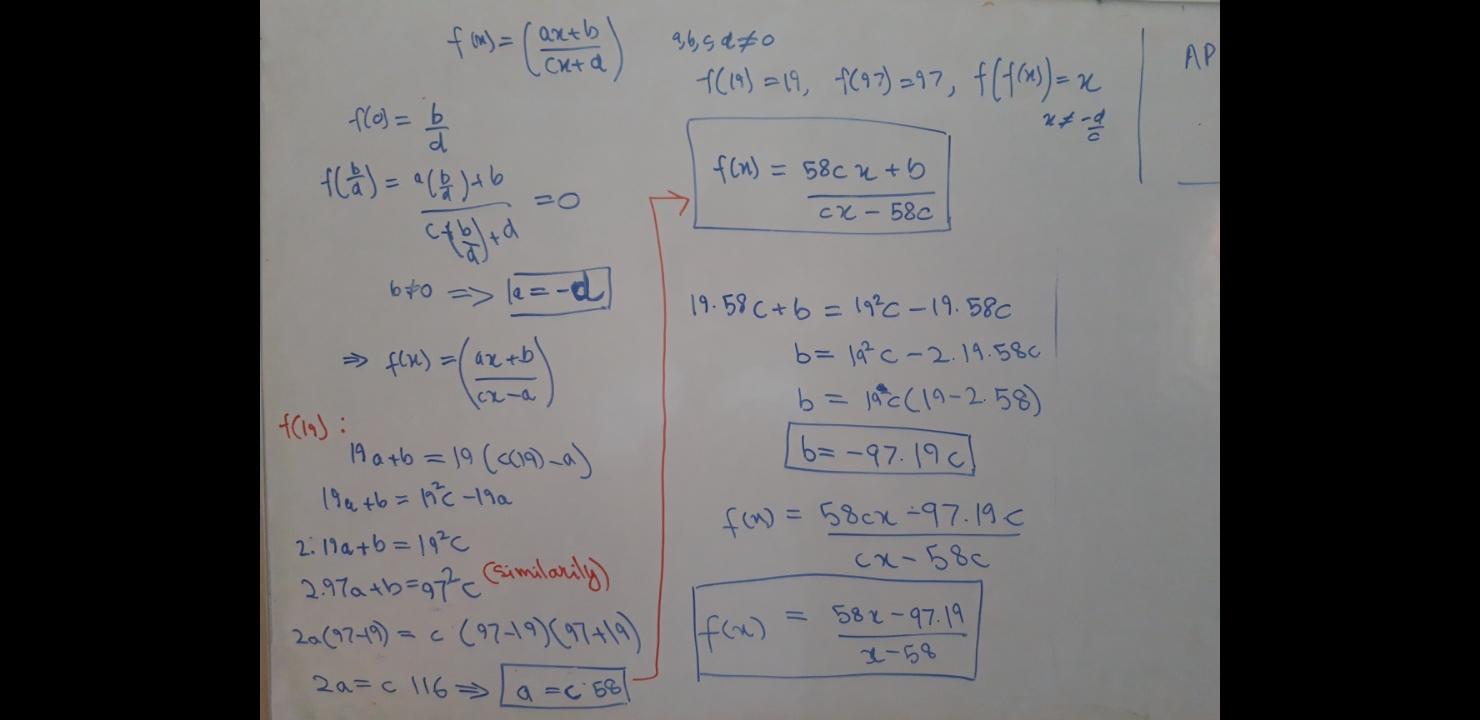 f(x) = (ax+b / cx+d)
a, b, c, d ≠ 0
f(19) = 19, f(97) = 97, f(f(x)) = x
x ≠ -d/c
AP
f(0) = b/d
f(b/d) = a(b/d)+b / c(b/d)+d = 0
b≠0 => a = -d
⇒ f(x) = (ax+b / cx-a)
f(19) :
19a+b = 19 (c(19)-a)
19a+b = 19²c -19a
2.19a+b = 19²c
2.97a+b = 97²c (similarily)
2a(97-19) = c (97-19)(97+19)
2a = c 116 ⇒ a = c 58
f(x) = 58cx + b / cx - 58c
19.58c + b = 19²c - 19.58c
b = 19²c - 2.19.58c
b = 19c(19-2.58)
b = -97.19c
f(x) = 58cx - 97.19c / cx - 58c
f(x) = 58x - 97.19 / x-58